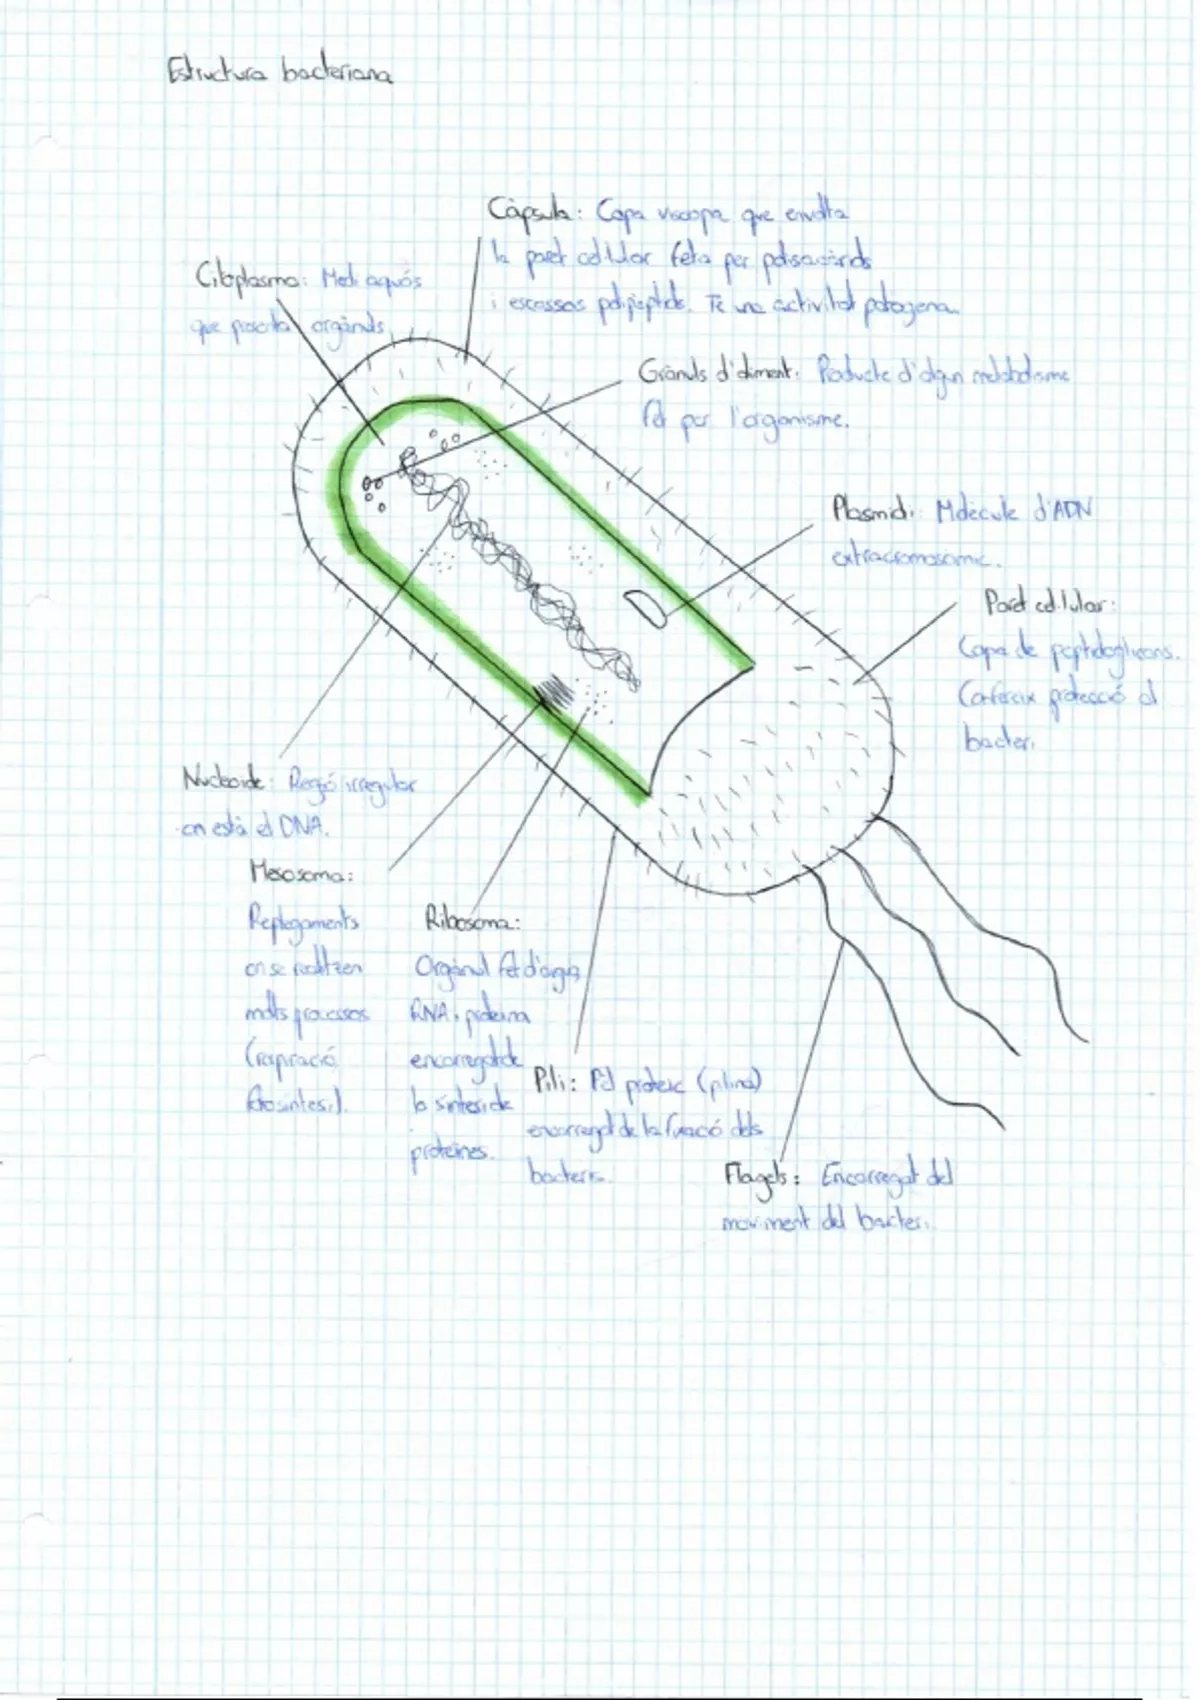 Estructura bacteriana
Càpsula: Capa viscosa que envolta
la paret cel·lular feta per polisacàrids
i escassos polipèptids. Té una activitat patogena.
Citoplasma: Medi aquós
que presenta orgànuls
Grànuls d'aliment: Producte d'algun metabolisme
fet per l'organisme.
Plasmidi: Molècula d'ADN
extracromosòmic.
Paret cel·lular:
Capa de peptidoglicans.
Confereix protecció al
bacteri.
Nucleoide: Regió irregular
on està el DNA.
Mesosoma:
Replegaments
on se realitzen
molts processos
(respiració
fotosíntesi).
Ribosoma:
Orgànul fet d'àcid
RNA i proteïna
encarregat de
la síntesi de
proteïnes.
Pili: Pèl proteic (pilina)
encarregat de la fixació dels
bacteris.
Flagels: Encarregat del
moviment del bacteri.